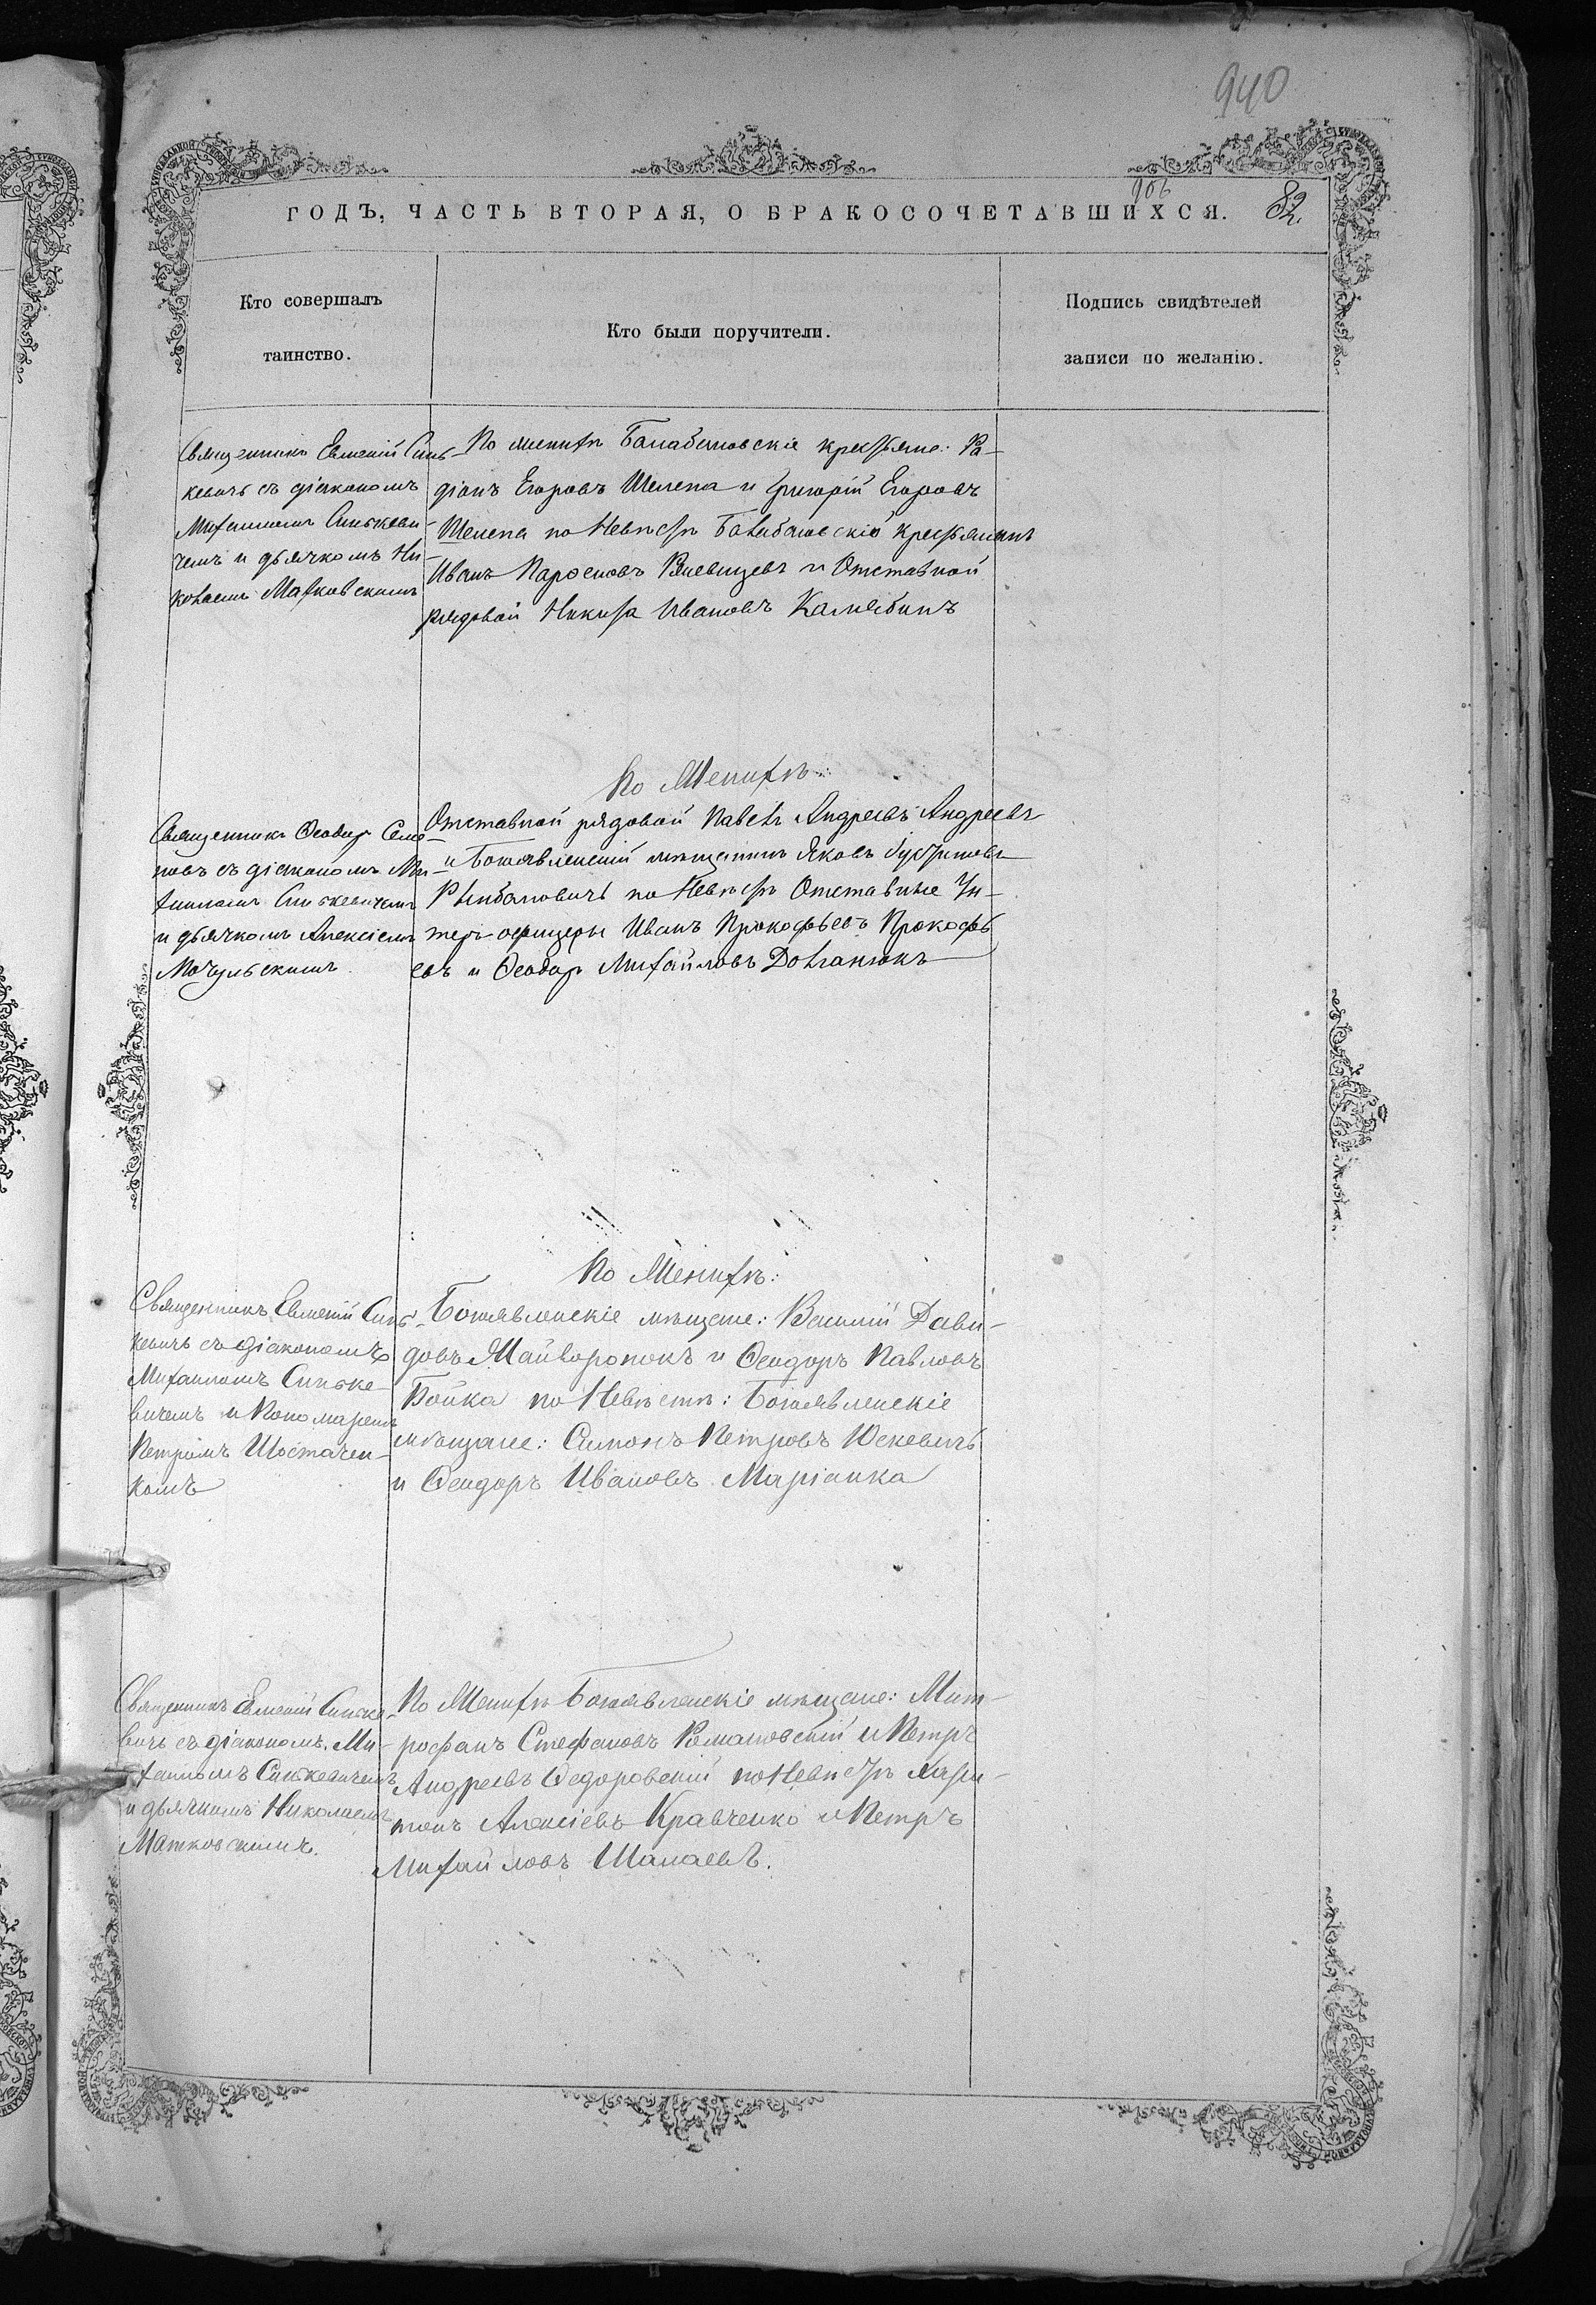 940
906
ГОДЪ, ЧАСТЬ ВТОРАЯ, О БРАКОСОЧЕТАВШИХСЯ. 82.
Кто совершалъ
таинство.
Кто были поручители.
Подпись свидѣтелей
записи по желанію.
Священникъ Евменій Синь-
кевичъ съ діакономъ
Михаиломъ Синькеви-
чемъ и дьячкомъ Ни-
колаемъ Матковскимъ
По женихѣ Балабановскіе крестьяне: Ра-
діонъ Егоровъ Шелепа и Григорій Егоровъ
Шелепа по Невѣстѣ Балабановскій крестьянинъ
Иванъ и Отставной
рядовой Никита Ивановъ
Священникъ Ѳеодоръ Семе-
новъ съ діакономъ Ми-
хаиломъ Синькевичемъ
и дьячкомъ Алексіемъ
Мочульскимъ
По Женихѣ:
Отставной рядовой Павелъ Андреевъ Андреевъ
и Богоявленскій мѣщанинъ Яковъ
по Невѣстѣ Отставные Ун-
теръ-офицеры Иванъ Прокофьевъ Прокофь
евъ и Ѳеодоръ Михайловъ Довганюкъ
Священникъ Евменій Синь-
кевичъ съ діакономъ
Михаиломъ Синьке-
вичемъ и Пономаремъ
Петромъ Шостачен-
комъ
По Женихѣ:
Богоявленскіе мѣщане: Василій Дави-
довъ Майворонокъ и Ѳеодоръ Павловъ
Бойка по Невѣстѣ: Богоявленскіе
мѣщане: Симонъ Петровъ Юскевичъ
и Ѳеодоръ Ивановъ Маріанка
Священникъ Евменій Синьке-
вичъ съ діакономъ Ми-
хаиломъ Синькевичемъ
и дьячкомъ Николаемъ
Матковскимъ.
По Женихѣ Богоявленскіе мѣщане: Мит-
рофанъ Стефановъ Романовскій и Петръ
Андреевъ Ѳедоровскій по Невѣстѣ Хари-
тонъ Алексіевъ Кравченко и Петръ
Михайловъ Шалаевъ.